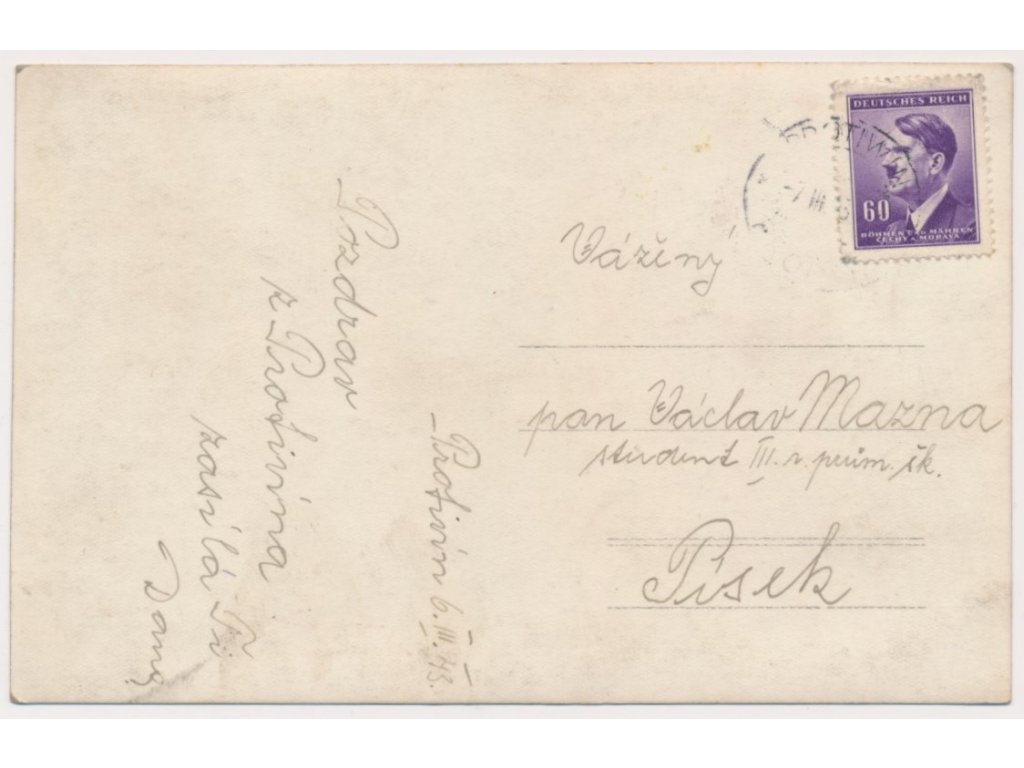 Pozdrav
z Protivína
zasílá Ti
Dana
Protivín 6. III. 43.
DEUTSCHES REICH
60
BÖHMEN UND MÄHREN
ČECHY A MORAVA
-7 III
Vážený
pan Václav Mazna
student III. r. prům. šk.
Písek